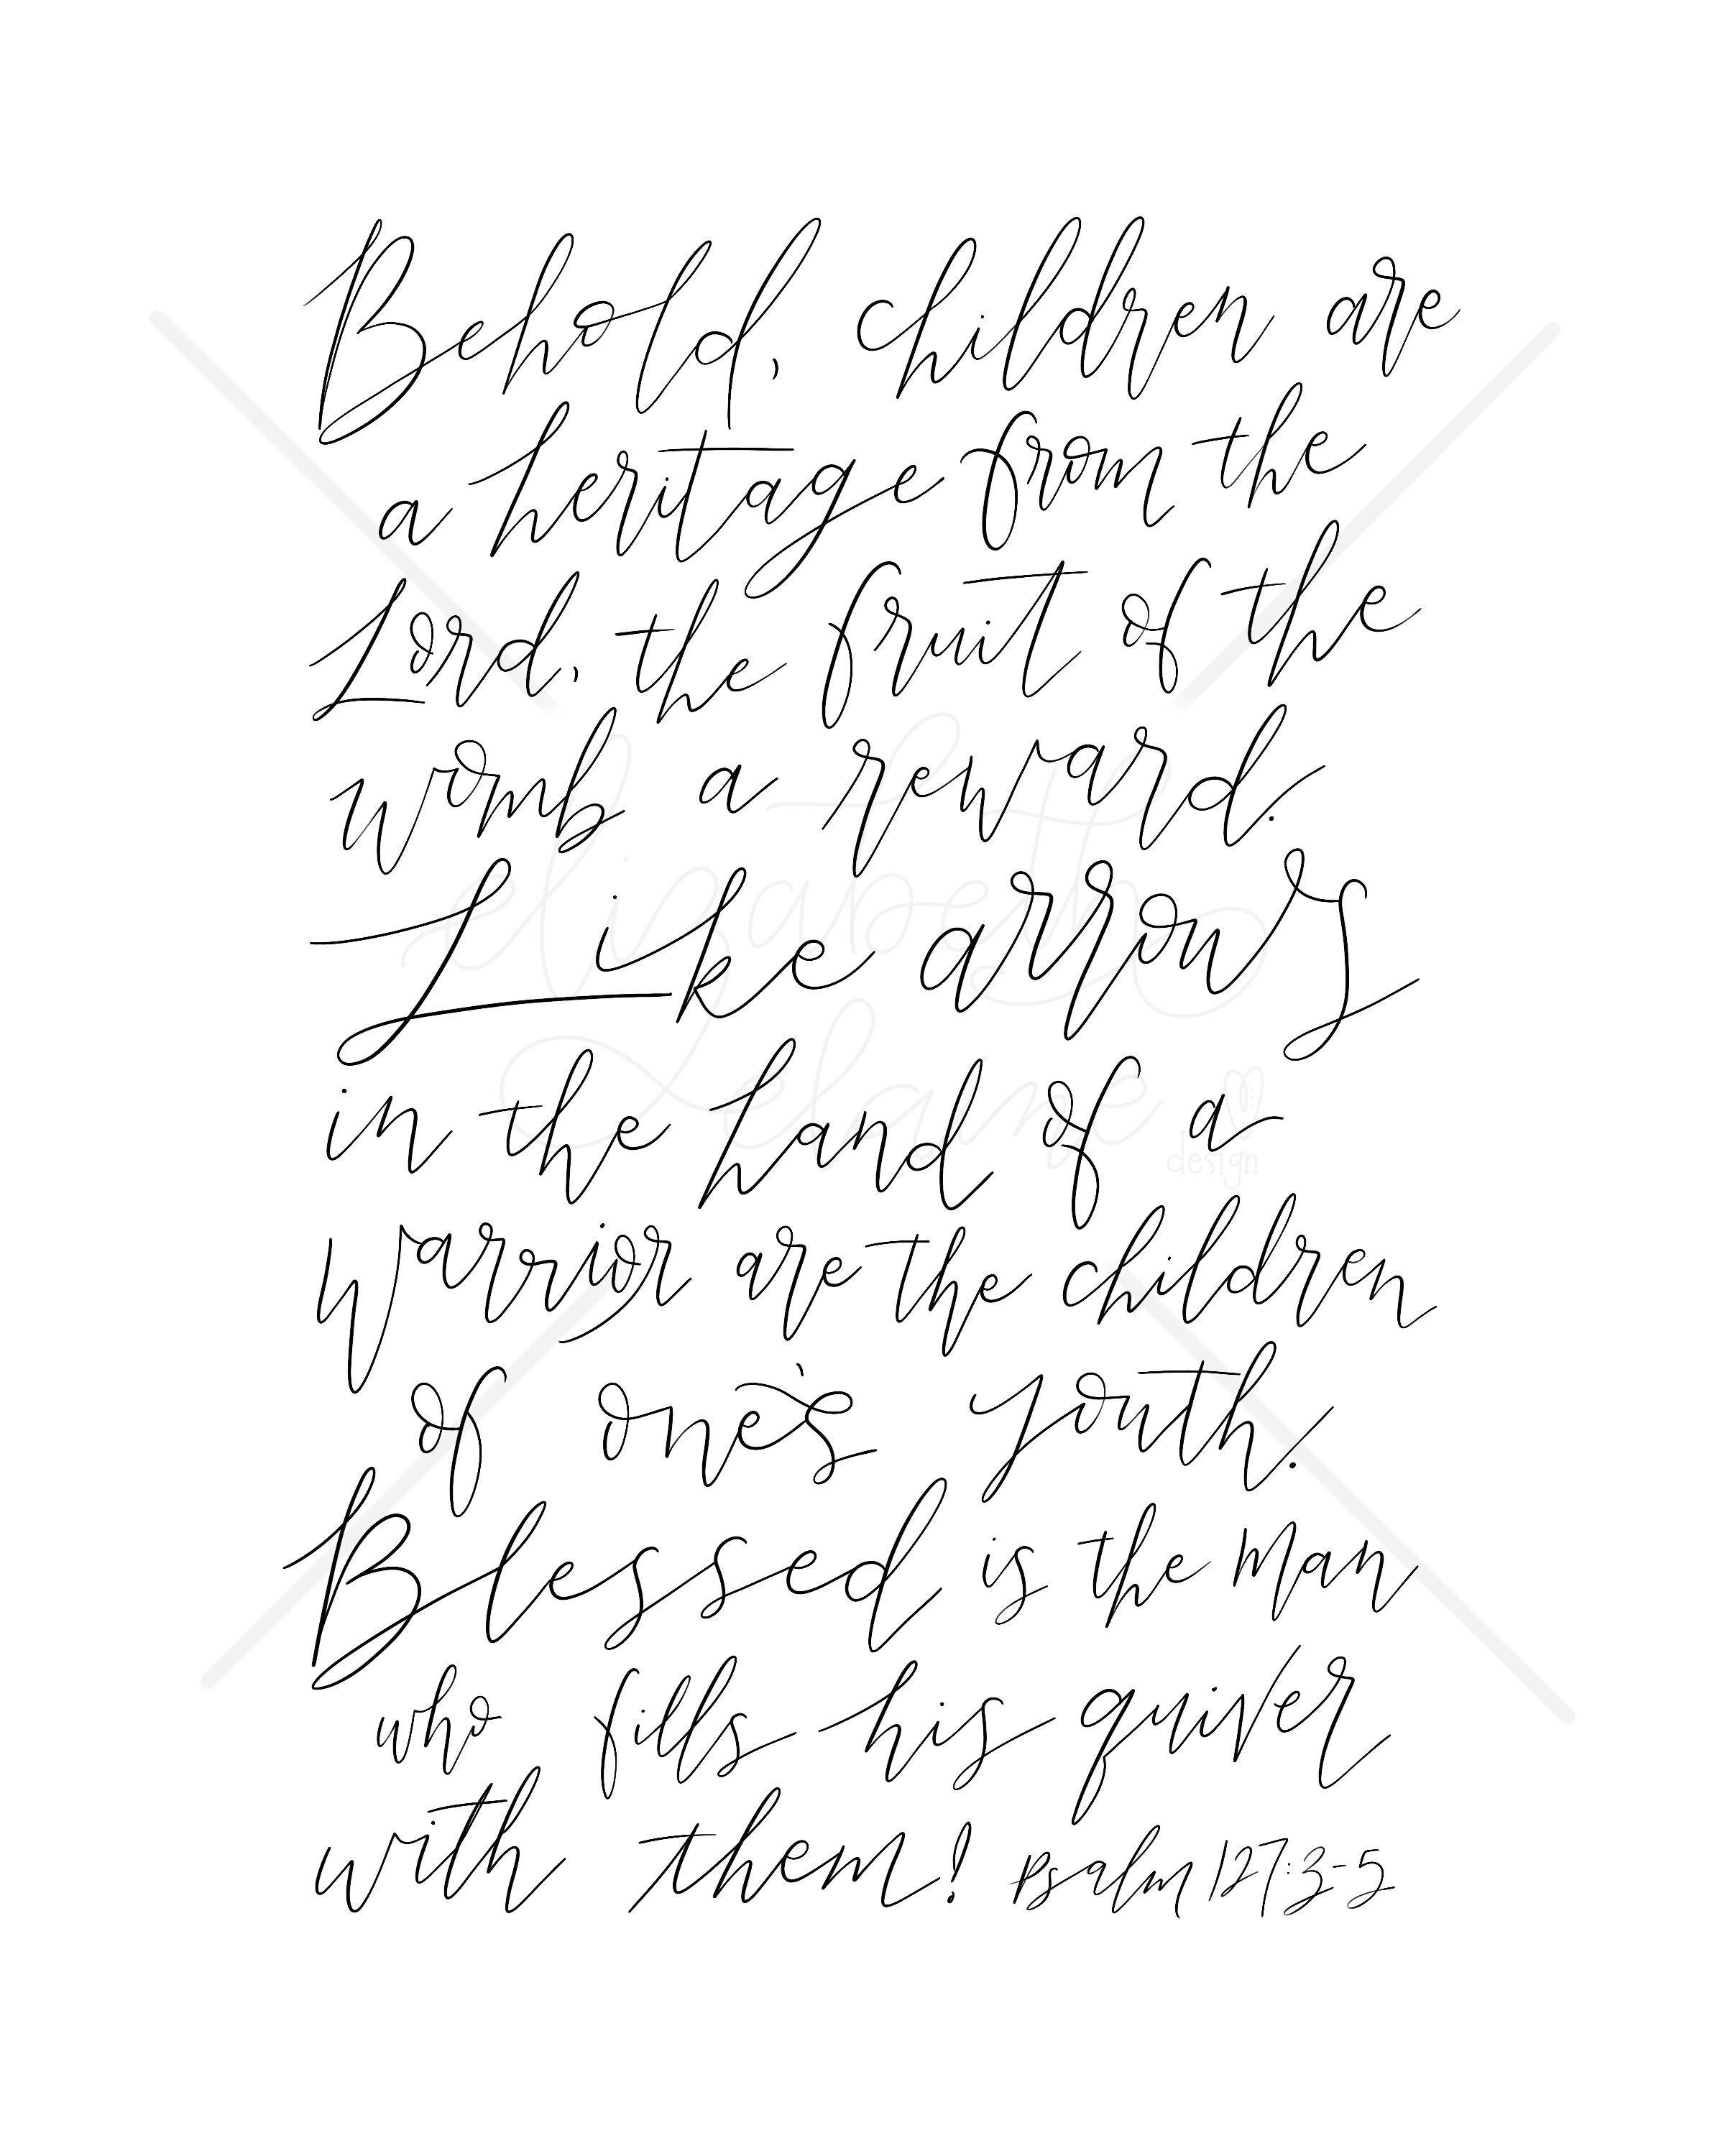 Behold, children are
a heritage from the
Lord, the fruit of the
womb a reward.
Like arrows
in the hand of a
warrior are the children
of one's youth.
Blessed is the man
who fills his quiver
with them! Psalm 127:3-5
elizabeth
elaine
design